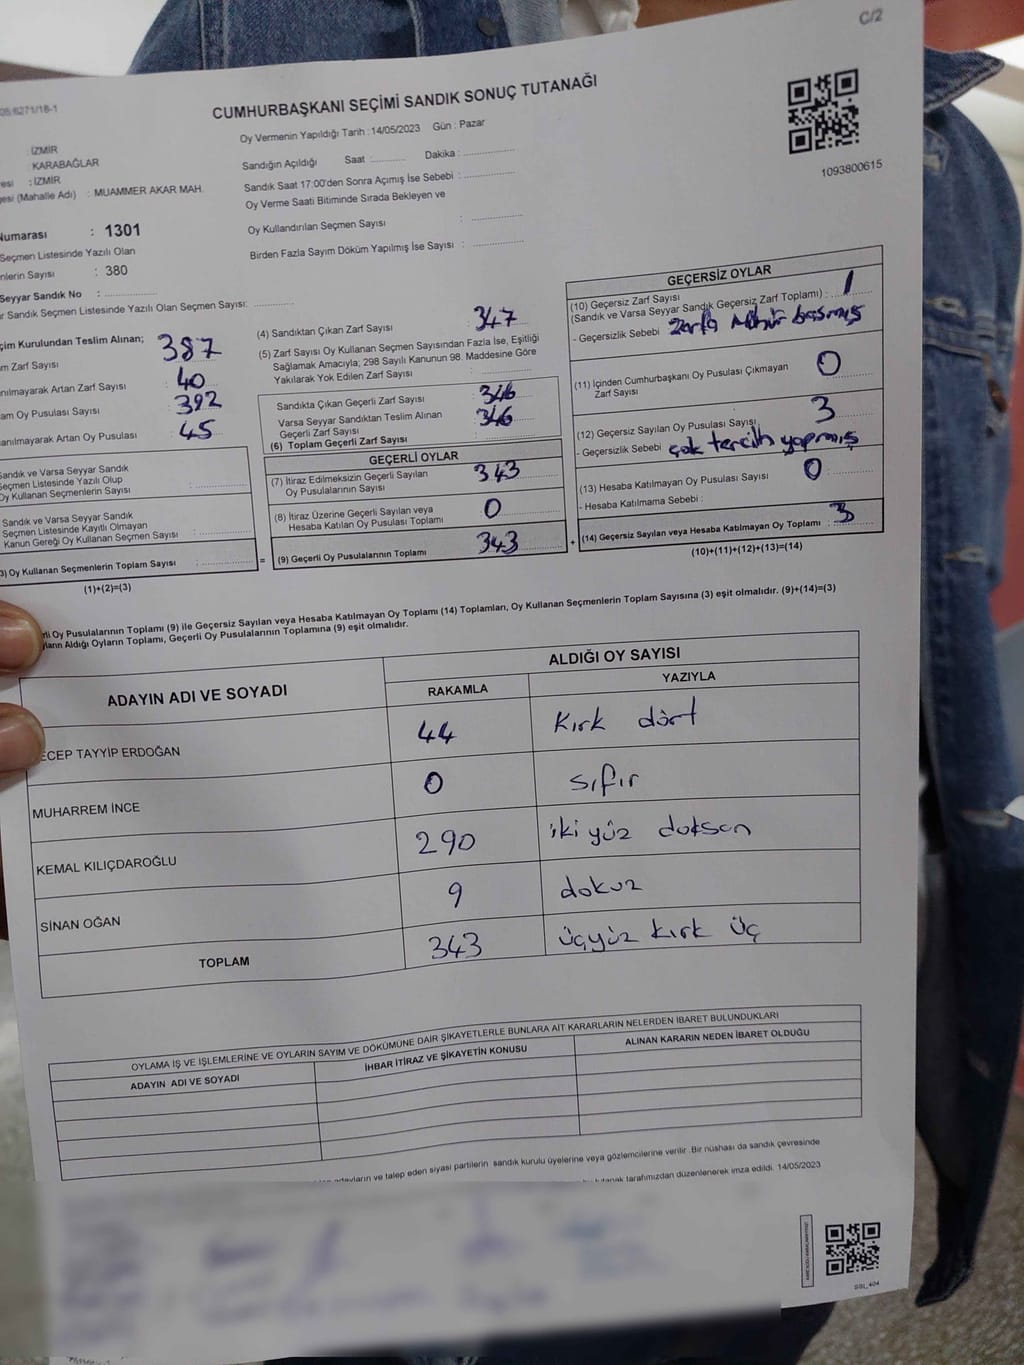 C/2
CUMHURBAŞKANI SEÇİMİ SANDIK SONUÇ TUTANAĞI
Oy Vermenin Yapıldığı Tarih : 14/05/2023 Gün : Pazar
: İZMİR
: KARABAĞLAR
: İZMİR
(Mahalle Adı) : MUAMMER AKAR MAH.
: 1301
Seçmen Listesinde Yazılı Olan
Sayısı : 380
Seyyar Sandık No : ............
Sandık Seçmen Listesinde Yazılı Olan Seçmen Sayısı: ............
Kurulundan Teslim Alınan;
Zarf Sayısı 387
Artan Zarf Sayısı : 40
Oy Pusulası Sayısı : 392
Artan Oy Pusulası : 45
Sandık ve Varsa Seyyar Sandık
Seçmen Listesinde Yazılı Olup
Oy Kullanan Seçmenlerin Sayısı : ............
Sandık ve Varsa Seyyar Sandık
Seçmen Listesinde Kayıtlı Olmayan
Kanun Gereği Oy Kullanan Seçmen Sayısı : ............
3) Oy Kullanan Seçmenlerin Toplam Sayısı : ............ =
(1)+(2)=(3)
Sandığın Açıldığı Saat : ............ Dakika : ............
Sandık Saat 17:00'den Sonra Açımış İse Sebebi : ............
Oy Verme Saati Bitiminde Sırada Bekleyen ve
Oy Kullandırılan Seçmen Sayısı : ............
Birden Fazla Sayım Döküm Yapılmış İse Sayısı : ............
(4) Sandıktan Çıkan Zarf Sayısı : 347
(5) Zarf Sayısı Oy Kullanan Seçmen Sayısından Fazla İse, Eşitliği
Sağlamak Amacıyla; 298 Sayılı Kanunun 98. Maddesine Göre
Yakılarak Yok Edilen Zarf Sayısı : ............
Sandıkta Çıkan Geçerli Zarf Sayısı : 346
Varsa Seyyar Sandıktan Teslim Alınan
Geçerli Zarf Sayısı : 346
(6) Toplam Geçerli Zarf Sayısı : ............
GEÇERLİ OYLAR
(7) İtiraz Edilmeksizin Geçerli Sayılan
Oy Pusulalarının Sayısı : 343
(8) İtiraz Üzerine Geçerli Sayılan veya
Hesaba Katılan Oy Pusulası Toplamı : 0
(9) Geçerli Oy Pusulalarının Toplamı : 343 +
1093800615
GEÇERSİZ OYLAR
(10) Geçersiz Zarf Sayısı
(Sandık ve Varsa Seyyar Sandık Geçersiz Zarf Toplamı) : 1
- Geçersizlik Sebebi : Zarfa Mühür basmış
(11) İçinden Cumhurbaşkanı Oy Pusulası Çıkmayan
Zarf Sayısı : 0
(12) Geçersiz Sayılan Oy Pusulası Sayısı : 3
- Geçersizlik Sebebi : çok tercih yapmış
(13) Hesaba Katılmayan Oy Pusulası Sayısı : 0
- Hesaba Katılmama Sebebi :
(14) Geçersiz Sayılan veya Hesaba Katılmayan Oy Toplamı : 3
(10)+(11)+(12)+(13)=(14)
Oy Pusulalarının Toplamı (9) ile Geçersiz Sayılan veya Hesaba Katılmayan Oy Toplamı (14) Toplamları, Oy Kullanan Seçmenlerin Toplam Sayısına (3) eşit olmalıdır. (9)+(14)=(3)
Aldığı Oyların Toplamı, Geçerli Oy Pusulalarının Toplamına (9) eşit olmalıdır.
ADAYIN ADI VE SOYADI ALDIĞI OY SAYISI
RAKAMLA YAZIYLA
TAYYİP ERDOĞAN 44 Kırk dört
MUHARREM İNCE 0 sıfır
KEMAL KILIÇDAROĞLU 290 iki yüz doksan
SİNAN OĞAN 9 dokuz
TOPLAM 343 üçyüz kırk üç
OYLAMA İŞ VE İŞLEMLERİNE VE OYLARIN SAYIM VE DÖKÜMÜNE DAİR ŞİKAYETLERLE BUNLARA AİT KARARLARIN NELERDEN İBARET BULUNDUKLARI
ADAYIN ADI VE SOYADI İHBAR İTİRAZ VE ŞİKAYETİN KONUSU ALINAN KARARIN NEDEN İBARET OLDUĞU
ve talep eden siyasi partilerin sandık kurulu üyelerine veya gözlemcilerine verilir .Bir nüshası da sandık çevresinde
tutanak tarafımızdan düzenlenerek imza edildi. 14/05/2023